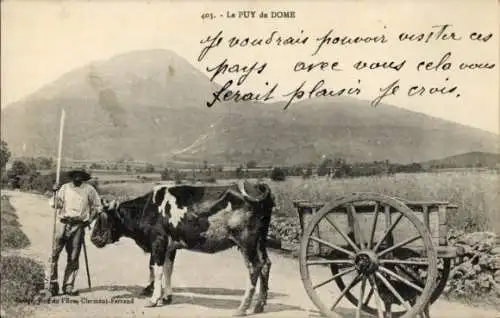 403. - Le PUY de DOME
Je voudrais pouvoir visiter ces
pays avec vous cela vous
ferait plaisir je crois.
Clermont-Ferrand